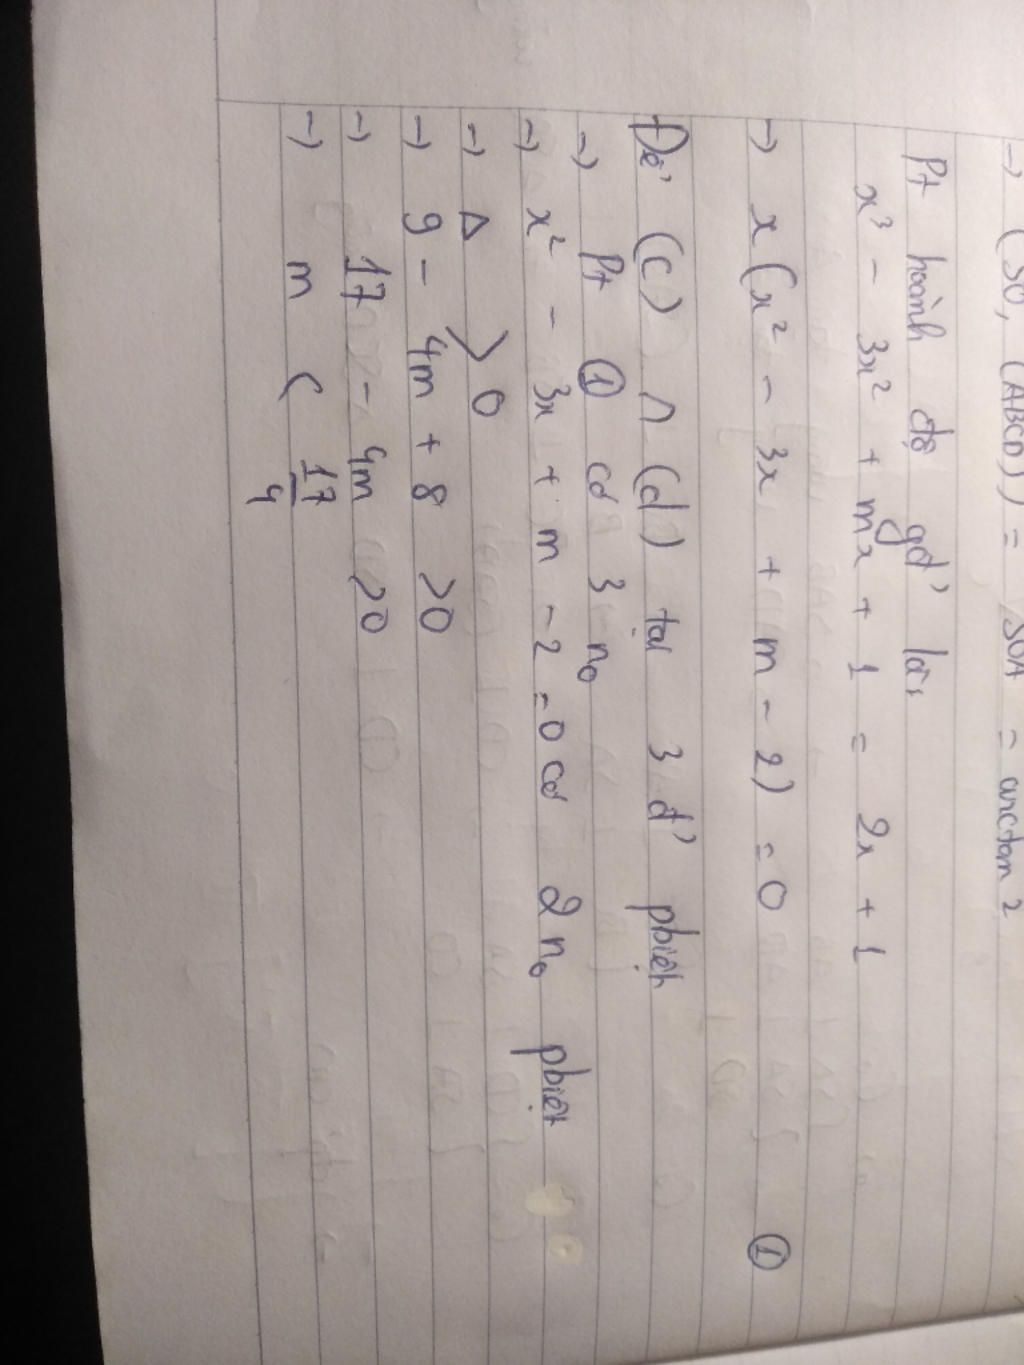 → (SO, (ABCD)) = SOA = arctan 2
Pt hoành độ gđ' là:
x³ - 3x² + mx + 1 = 2x + 1
→ x(x² - 3x + m - 2) = 0 ①
Để (C) ∩ (d) tại 3 đ' pbiệt
→ Pt ① có 3 n₀
→ x² - 3x + m - 2 = 0 có 2 n₀ pbiệt
→ Δ > 0
→ 9 - 4m + 8 > 0
→ 17 - 4m > 0
→ m < 17/4